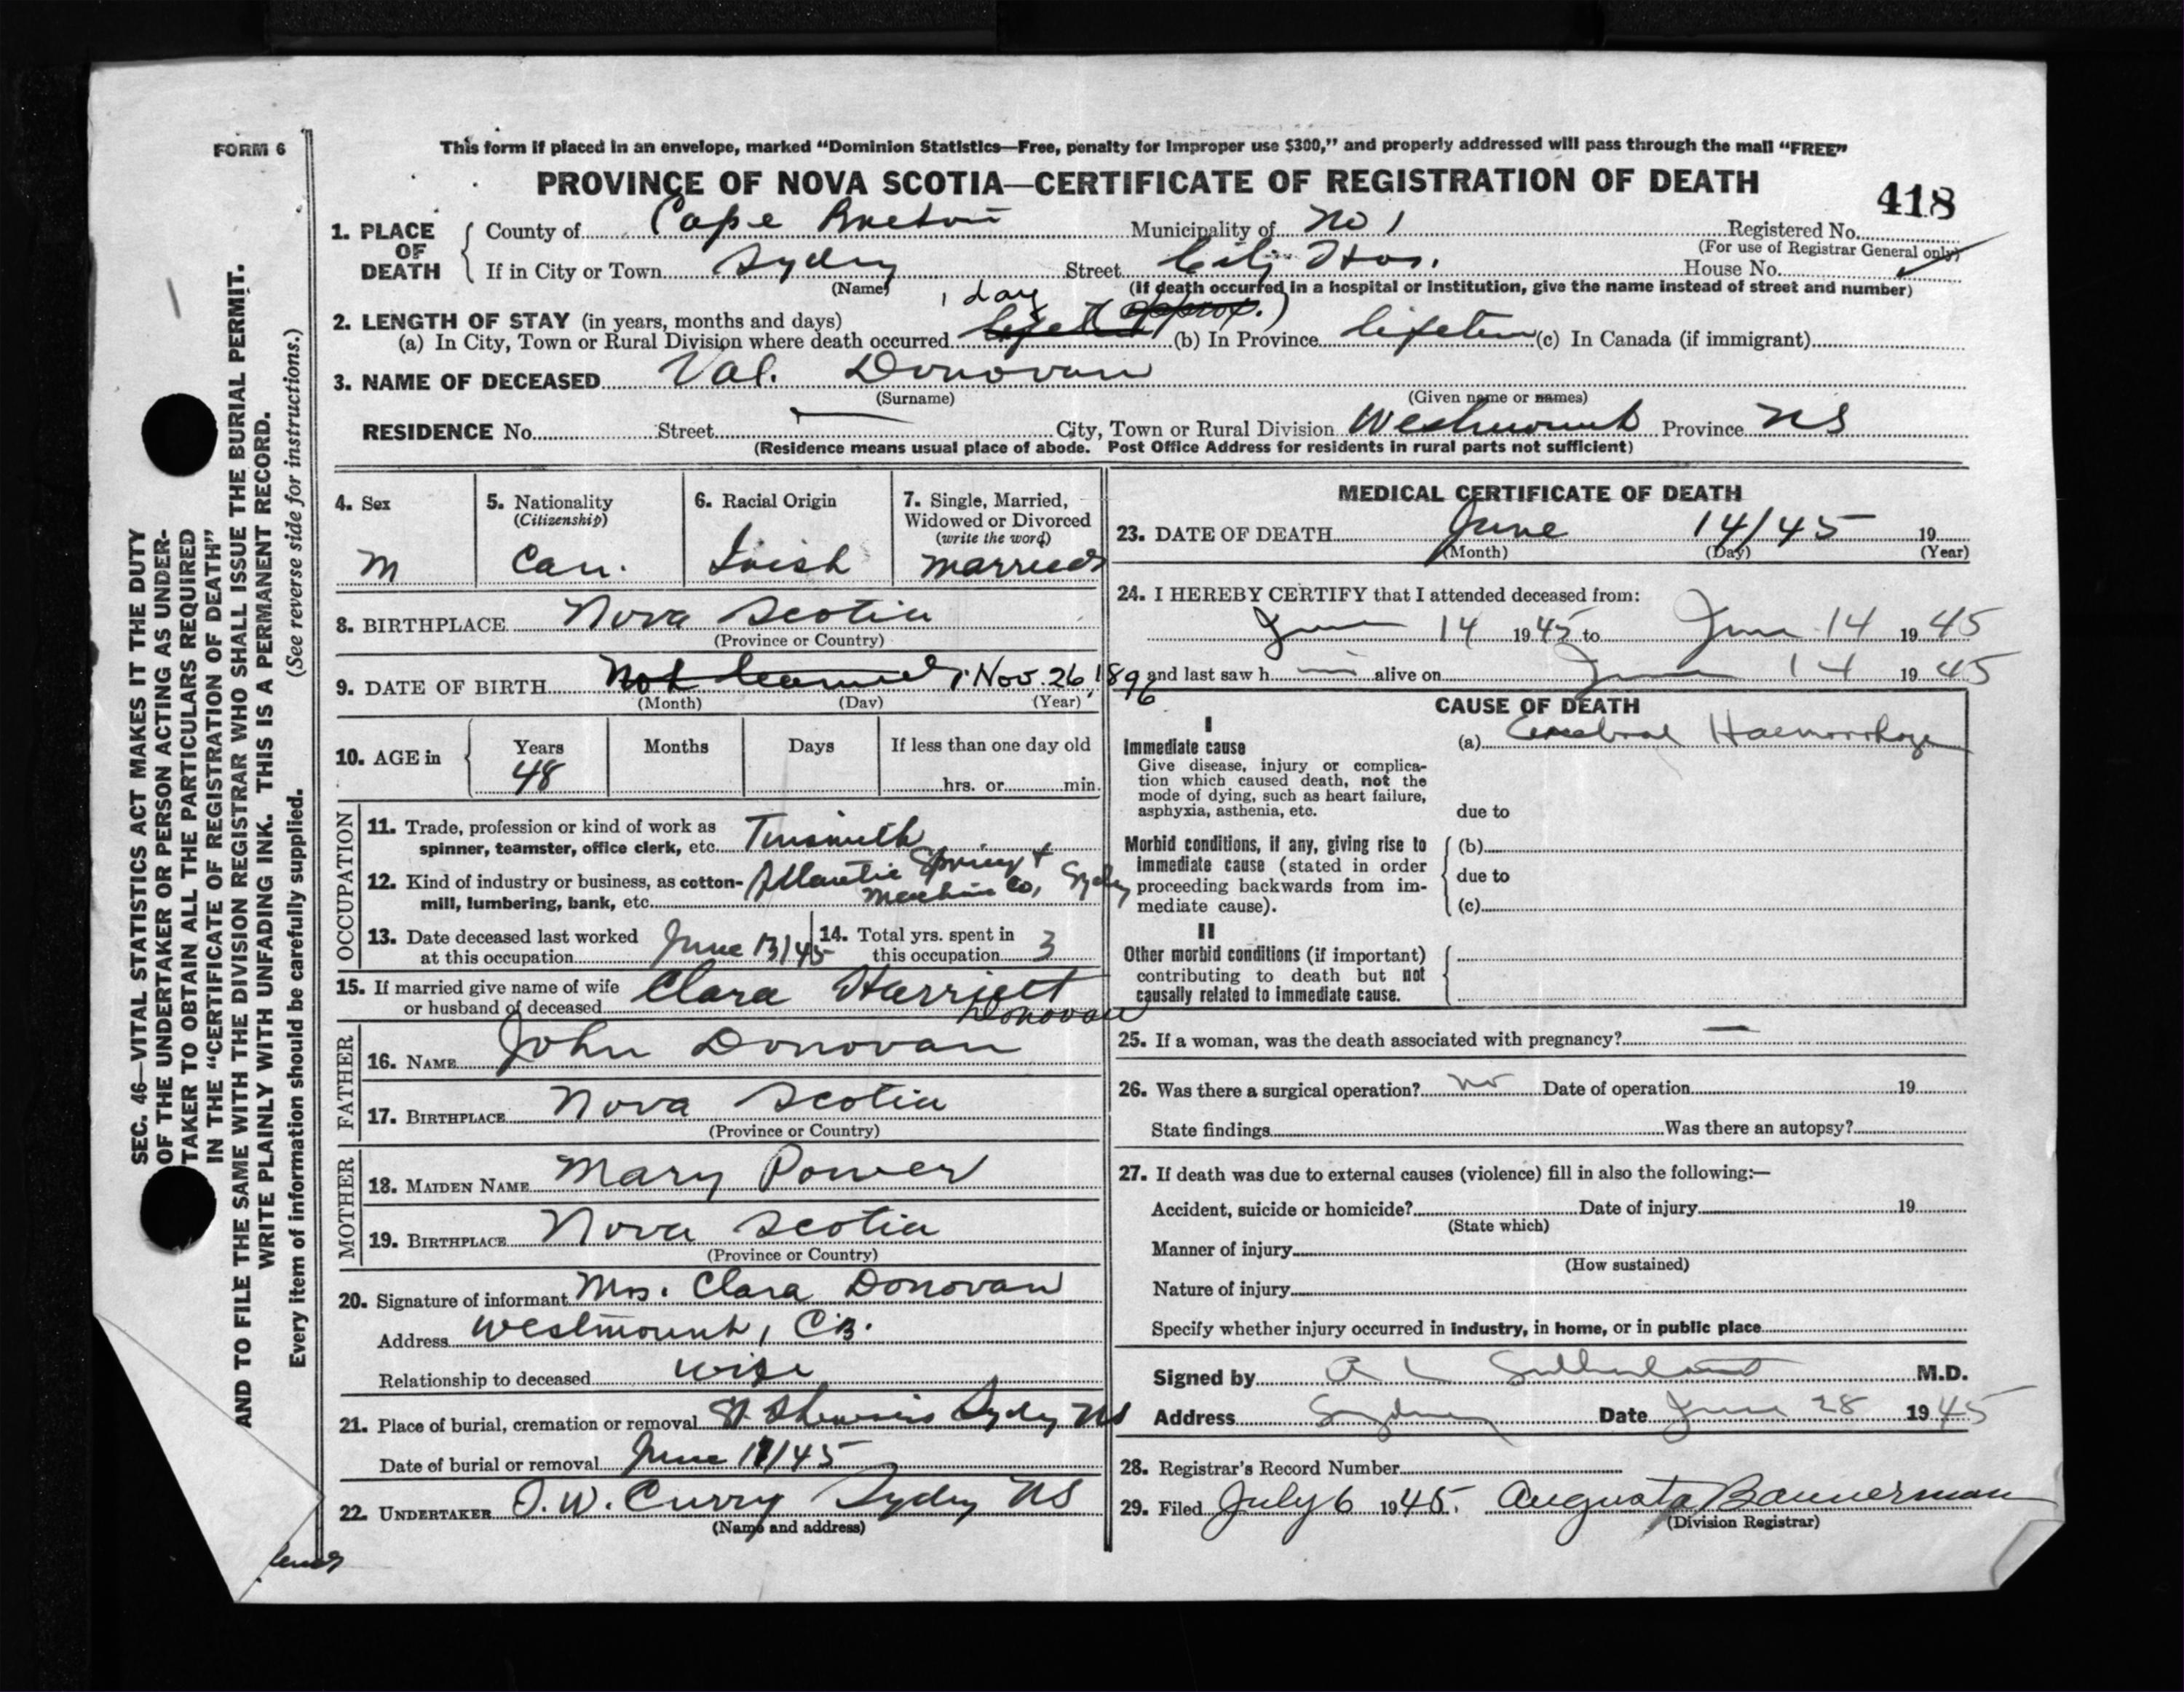 FORM 6
This form if placed in an envelope, marked “Dominion Statistics—Free, penalty for improper use $300,” and properly addressed will pass through the mail “FREE”
PROVINCE OF NOVA SCOTIA—CERTIFICATE OF REGISTRATION OF DEATH
418
1. PLACE OF DEATH
County of Cape Breton Municipality of No 1 Registered No.
(For use of Registrar General only)
If in City or Town Sydney Street City Hos. House No.
(Name) (If death occurred in a hospital or institution, give the name instead of street and number)
1 day
2. LENGTH OF STAY (in years, months and days)
(a) In City, Town or Rural Division where death occurred (approx.) (b) In Province lifetime (c) In Canada (if immigrant)
3. NAME OF DECEASED Val. Donovan
(Surname) (Given name or names)
RESIDENCE No. Street City, Town or Rural Division Westmount Province NS
(Residence means usual place of abode. Post Office Address for residents in rural parts not sufficient)
4. Sex
M
5. Nationality
(Citizenship)
Can.
6. Racial Origin
Irish
7. Single, Married,
Widowed or Divorced
(write the word)
married
8. BIRTHPLACE Nova Scotia
(Province or Country)
9. DATE OF BIRTH Not learned Nov. 26, 1896
(Month) (Day) (Year)
10. AGE in
Years Months Days If less than one day old
48
hrs. or min.
OCCUPATION
11. Trade, profession or kind of work as
spinner, teamster, office clerk, etc. Tinsmith
12. Kind of industry or business, as cotton-
mill, lumbering, bank, etc. Atlantic Spring & Machine Co, Sydney
13. Date deceased last worked
at this occupation June 13/45
14. Total yrs. spent in
this occupation 3
15. If married give name of wife
or husband of deceased Clara Harriett Donovan
FATHER
16. NAME John Donovan
17. BIRTHPLACE Nova Scotia
(Province or Country)
MOTHER
18. MAIDEN NAME Mary Power
19. BIRTHPLACE Nova Scotia
(Province or Country)
20. Signature of informant Mrs. Clara Donovan
Address Westmount, C.B.
Relationship to deceased wife
21. Place of burial, cremation or removal Sydney NS
Date of burial or removal June /45
22. UNDERTAKER Curry Sydney NS
(Name and address)
MEDICAL CERTIFICATE OF DEATH
23. DATE OF DEATH June 14/45 19
(Month) (Day) (Year)
24. I HEREBY CERTIFY that I attended deceased from:
June 14 1945 to June 14 1945
and last saw h im alive on June 14 1945
CAUSE OF DEATH
I
Immediate cause
Give disease, injury or complica-
tion which caused death, not the
mode of dying, such as heart failure,
asphyxia, asthenia, etc.
(a) Cerebral Haemorrhage
due to
Morbid conditions, if any, giving rise to
immediate cause (stated in order
proceeding backwards from im-
mediate cause).
(b)
due to
(c)
II
Other morbid conditions (if important)
contributing to death but not
causally related to immediate cause.
25. If a woman, was the death associated with pregnancy? —
26. Was there a surgical operation? no Date of operation 19
State findings Was there an autopsy?
27. If death was due to external causes (violence) fill in also the following:—
Accident, suicide or homicide? Date of injury 19
(State which)
Manner of injury
(How sustained)
Nature of injury
Specify whether injury occurred in industry, in home, or in public place
Signed by A L Sutherland M.D.
Address Sydney Date June 28 1945
28. Registrar's Record Number
29. Filed July 6 1945. Augusta Bannerman
(Division Registrar)
SEC. 46—VITAL STATISTICS ACT MAKES IT THE DUTY
OF THE UNDERTAKER OR PERSON ACTING AS UNDER-
TAKER TO OBTAIN ALL THE PARTICULARS REQUIRED
IN THE “CERTIFICATE OF REGISTRATION OF DEATH”
AND TO FILE THE SAME WITH THE DIVISION REGISTRAR WHO SHALL ISSUE THE BURIAL PERMIT.
WRITE PLAINLY WITH UNFADING INK. THIS IS A PERMANENT RECORD.
Every item of information should be carefully supplied. (See reverse side for instructions.)